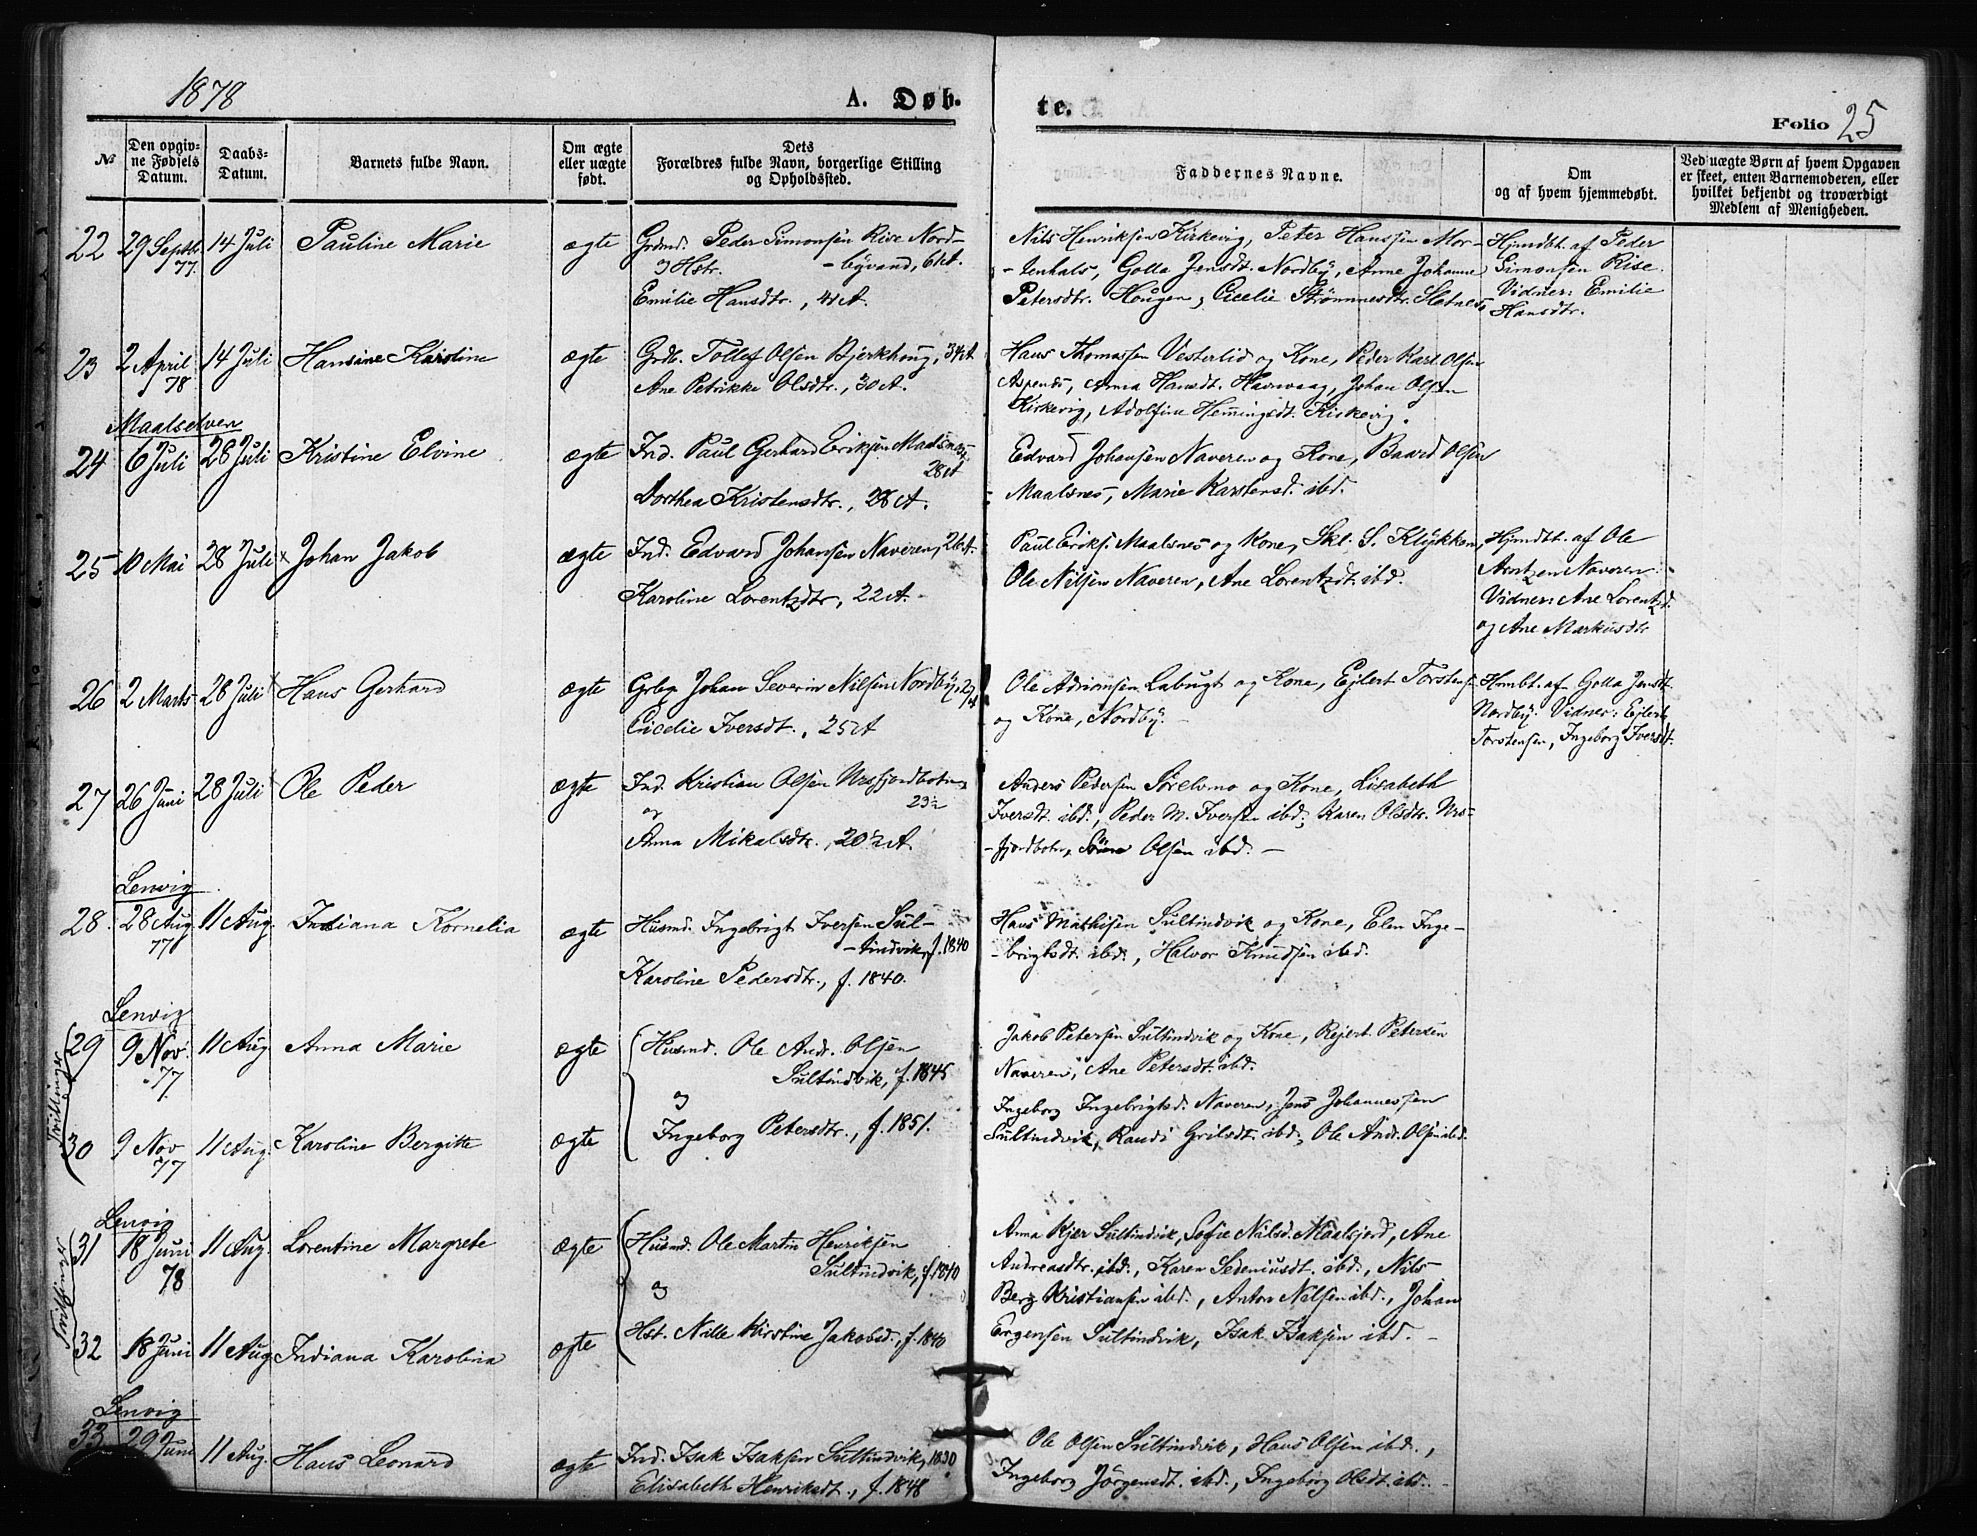 1878
A. Døb-
te.
Folio 25
№
Den opgiv-
ne Fødsels
Datum.
Daabs-
Datum.
Barnets fulde Navn.
Om ægte
eller uægte
født.
Dets
Forældres fulde Navn, borgerlige Stilling
og Opholdssted.
Faddernes Navne.
Om
og af hvem hjemmedøbt.
Ved uægte Børn af hvem Opgaven
er skeet, enten Barnemoderen, eller
hvilket bekjendt og troværdigt
Medlem af Menigheden.
22 29 Septbr. 77. 14 Juli Pauline Marie ægte
Grdmd. Peder Simonsen Rise Nord-
og Hstr. -byvand, 61 A.
Emilie Hansdtr., 41 A.
Nils Henriksen Kirkevig, Peter Hansen Mor-
-tenhals, Golla Jensdt. Nordby, Anne Johanne
Petersdtr. Hougen, Cicelie Strømmesdtr. Sletnes,
Hjmdbt. af Peder
Simonsen Rise.
Vidner: Emilie
Hansdtr.
23 2 April 78 14 Juli Hansine Karoline ægte
Grdb. Tollef Olsen Bjerkhoug, 34 A
Ane Petrikke Olsdtr., 30 A.
Hans Thomassen Vesterlid og Kone, Peder Karl Olsen
Aspenes, Anna Hansdt. Havnvaag, Johan Olsen
Kirkevig, Adolfine Hemingsdt. Kirkevig.
Maalselven
24 6 Juli 28 Juli Kristine Elvine ægte
Ind. Paul Gerhard Eriksen Maalsnes,
28 A
Dorthea Kristensdtr., 28 A.
Edvard Johansen Naveren og Kone, Baard Olsen
Maalsnes, Marie Karstensd. ibd.
25 10 Mai 28 Juli x Johan Jakob ægte
Ind. Edvard Johansen Naveren, 26 A.
Karoline Lorentzdtr, 22 A.
Paul Eriks. Maalsnes og Kone, Skl. S. Klykken,
Ole Nilsen Naveren, Ane Lorentzdt. ibd.
Hjmdbt. af Ole
Arntzen Naveren.
Vidner: Ane Lorentzd.
og Ane Markusdtr
26 2 Marts 28 Juli x Hans Gerhard ægte
Grbg. Johan Severin Nilsen Nordby, 29 A
Cicelie Iversdt., 25 A
Ole Adriansen Labugt og Kone, Ejlert Torstens.
og Kone, Nordby.
Hmbt. af Golla Jensdt.
Nordby. Vidner: Ejlert
Torstensen, Ingeborg Iversdt.
27 26 Juni 28 Juli x Ole Peder ægte
Ind. Kristian Olsen Ursfjordbotn,
23½
og
Anna Mikalsdtr., 20½ A.
Anders Pedersen Sørelvmo og Kone, Lisabeth
Iversdt. ibd., Peder M. Iversen ibd., Karen Olsdtr. Urs-
-fjordbotn, Olsen ibd.
Lenvig
28. 28 Aug 77 11 Aug. Indiana Kornelia ægte
Husmd. Ingebrigt Iversen Sul-
-tindvik, f. 1840
Karoline Pedersdtr., f. 1840.
Hans Mathisen Sultindvik og Kone, Elen Inge-
-brigtsdt. ibd., Halvor Knudsen ibd.
Lenvig
Tvillinger
29 9 Nov. 77 11 Aug Anna Marie ægte
Husmd. Ole Andr. Olsen
Sultindvik, f. 1845
og
Ingeborg Petersdtr., f. 1851.
Jakob Petersen Sultindvik og Kone, Rejert Petersen
Naveren, Ane Petersdt. ibd.
30 9 Nov 77 11 Aug. Karoline Bergitte ægte
Ingeborg Ingebrigtsd. Naveren, Jens Johannessen
Sultindvik, Randi Grilsdt. ibd., Ole Andr. Olsen ibd.
Lenvig
Tvillinger
31 18 Juni 78 11 Aug. Lorentine Margrete ægte
Husmd. Ole Martin Henriksen
Sultindvik, f. 1840
og
Hst. Nille Kirstine Jakobsd., f. 1840
Anna Kjer Sultindvik, Sofie Nilsd. Maalsjord, Ane
Andreasdtr. ibd., Karen Sedeniusdt. ibd., Nils
Berg Kristiansen ibd., Anton Nilsen ibd., Johan
Ergensen Sultindvik, Isak Isaksen ibd.
32 18 Juni 11 Aug Indiana Karolina ægte
Lenvig
33 29 Juni 11 Aug. Hans Leonard ægte
Ind. Isak Isaksen Sultindvik, 1830
Elisabeth Henriksdt., f. 1848
Ole Olsen Sultindvik, Hans Olsen ibd.,
Ingeborg Jørgensdt. ibd., Ingeborg Olsdt. ibd.